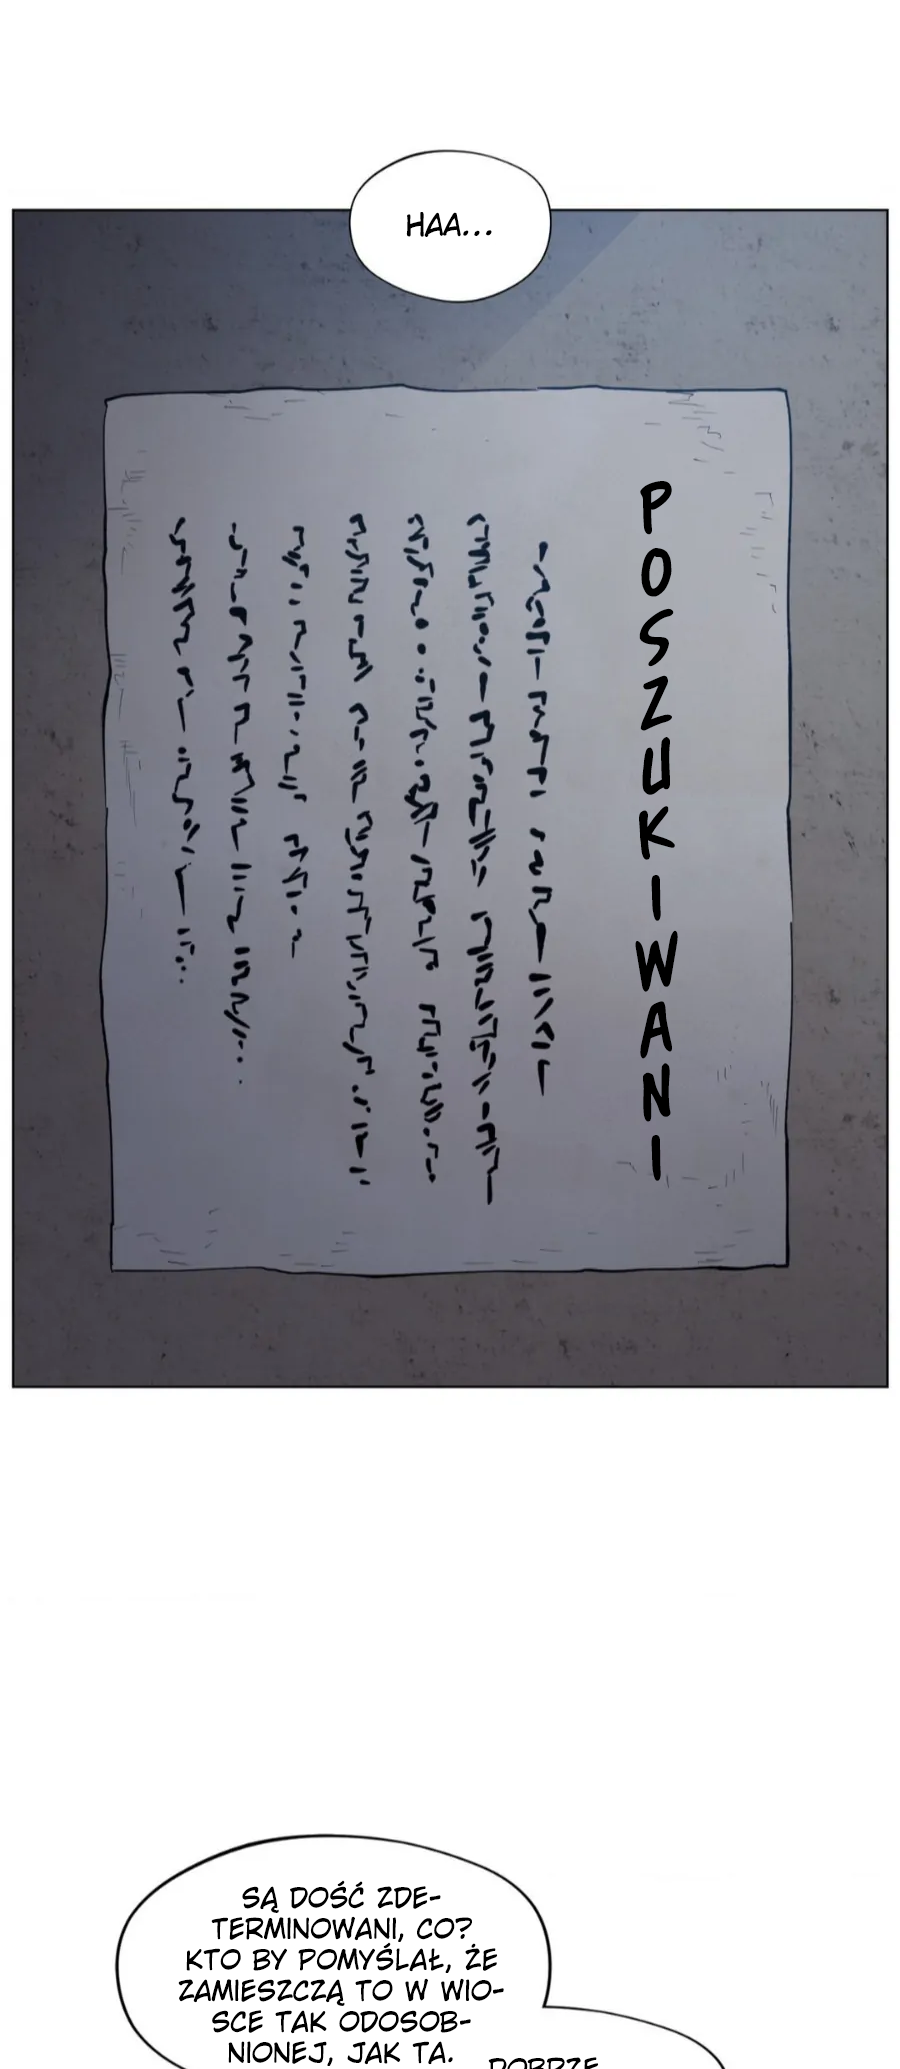 HAA...
POSZUKIWANI
SĄ DOŚĆ ZDE-
TERMINOWANI, CO?
KTO BY POMYŚLAŁ, ŻE
ZAMIESZCZĄ TO W WIO-
SCE TAK ODOSOB-
NIONEJ, JAK TA.
DOBRZE